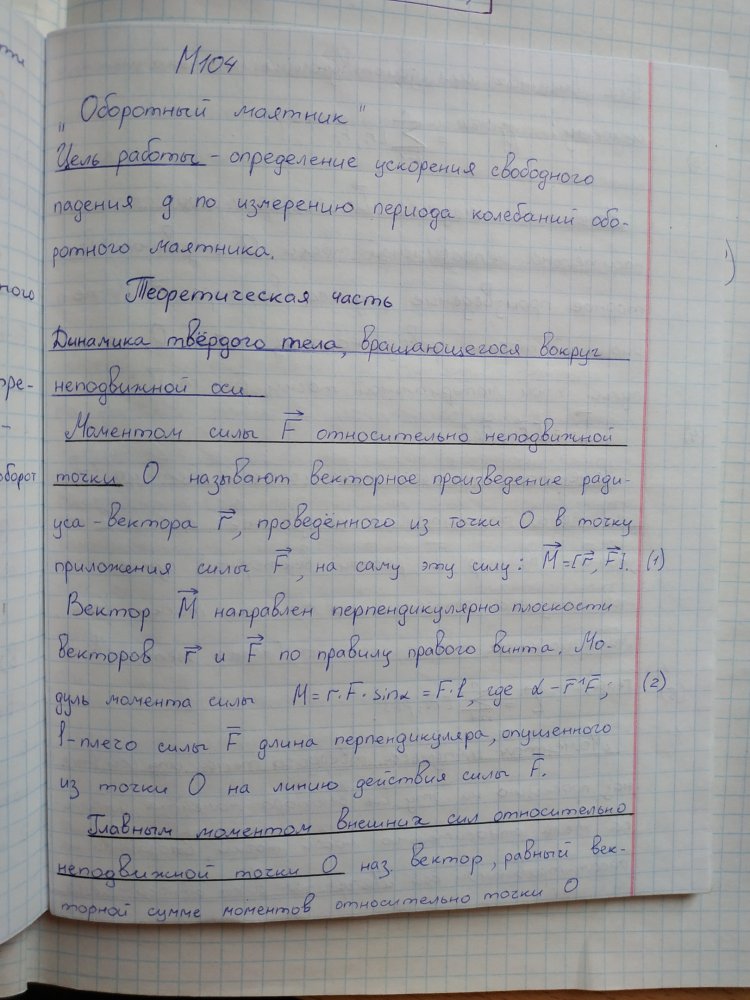 М104
"Оборотный маятник"
Цель работы - определение ускорения свободного
падения g по измерению периода колебаний обо-
ротного маятника.
Теоретическая часть
Динамика твёрдого тела, вращающегося вокруг
неподвижной оси
Моментом силы F⃗ относительно неподвижной
точки О называют векторное произведение ради-
уса-вектора r⃗, проведённого из точки О в точку
приложения силы F⃗, на саму эту силу: M⃗=[r⃗, F⃗]. (1)
Вектор M⃗ направлен перпендикулярно плоскости
векторов r⃗ и F⃗ по правилу правого винта. Мо-
дуль момента силы M=r·F·sinα=F·l, где α-r⃗^F⃗; (2)
l-плечо силы F̄ длина перпендикуляра, опущенного
из точки О на линию действия силы F̄.
Главным моментом внешних сил относительно
неподвижной точки О наз. вектор, равный век-
торной сумме моментов относительно точки О
ного
оре-
-
оборот
1)